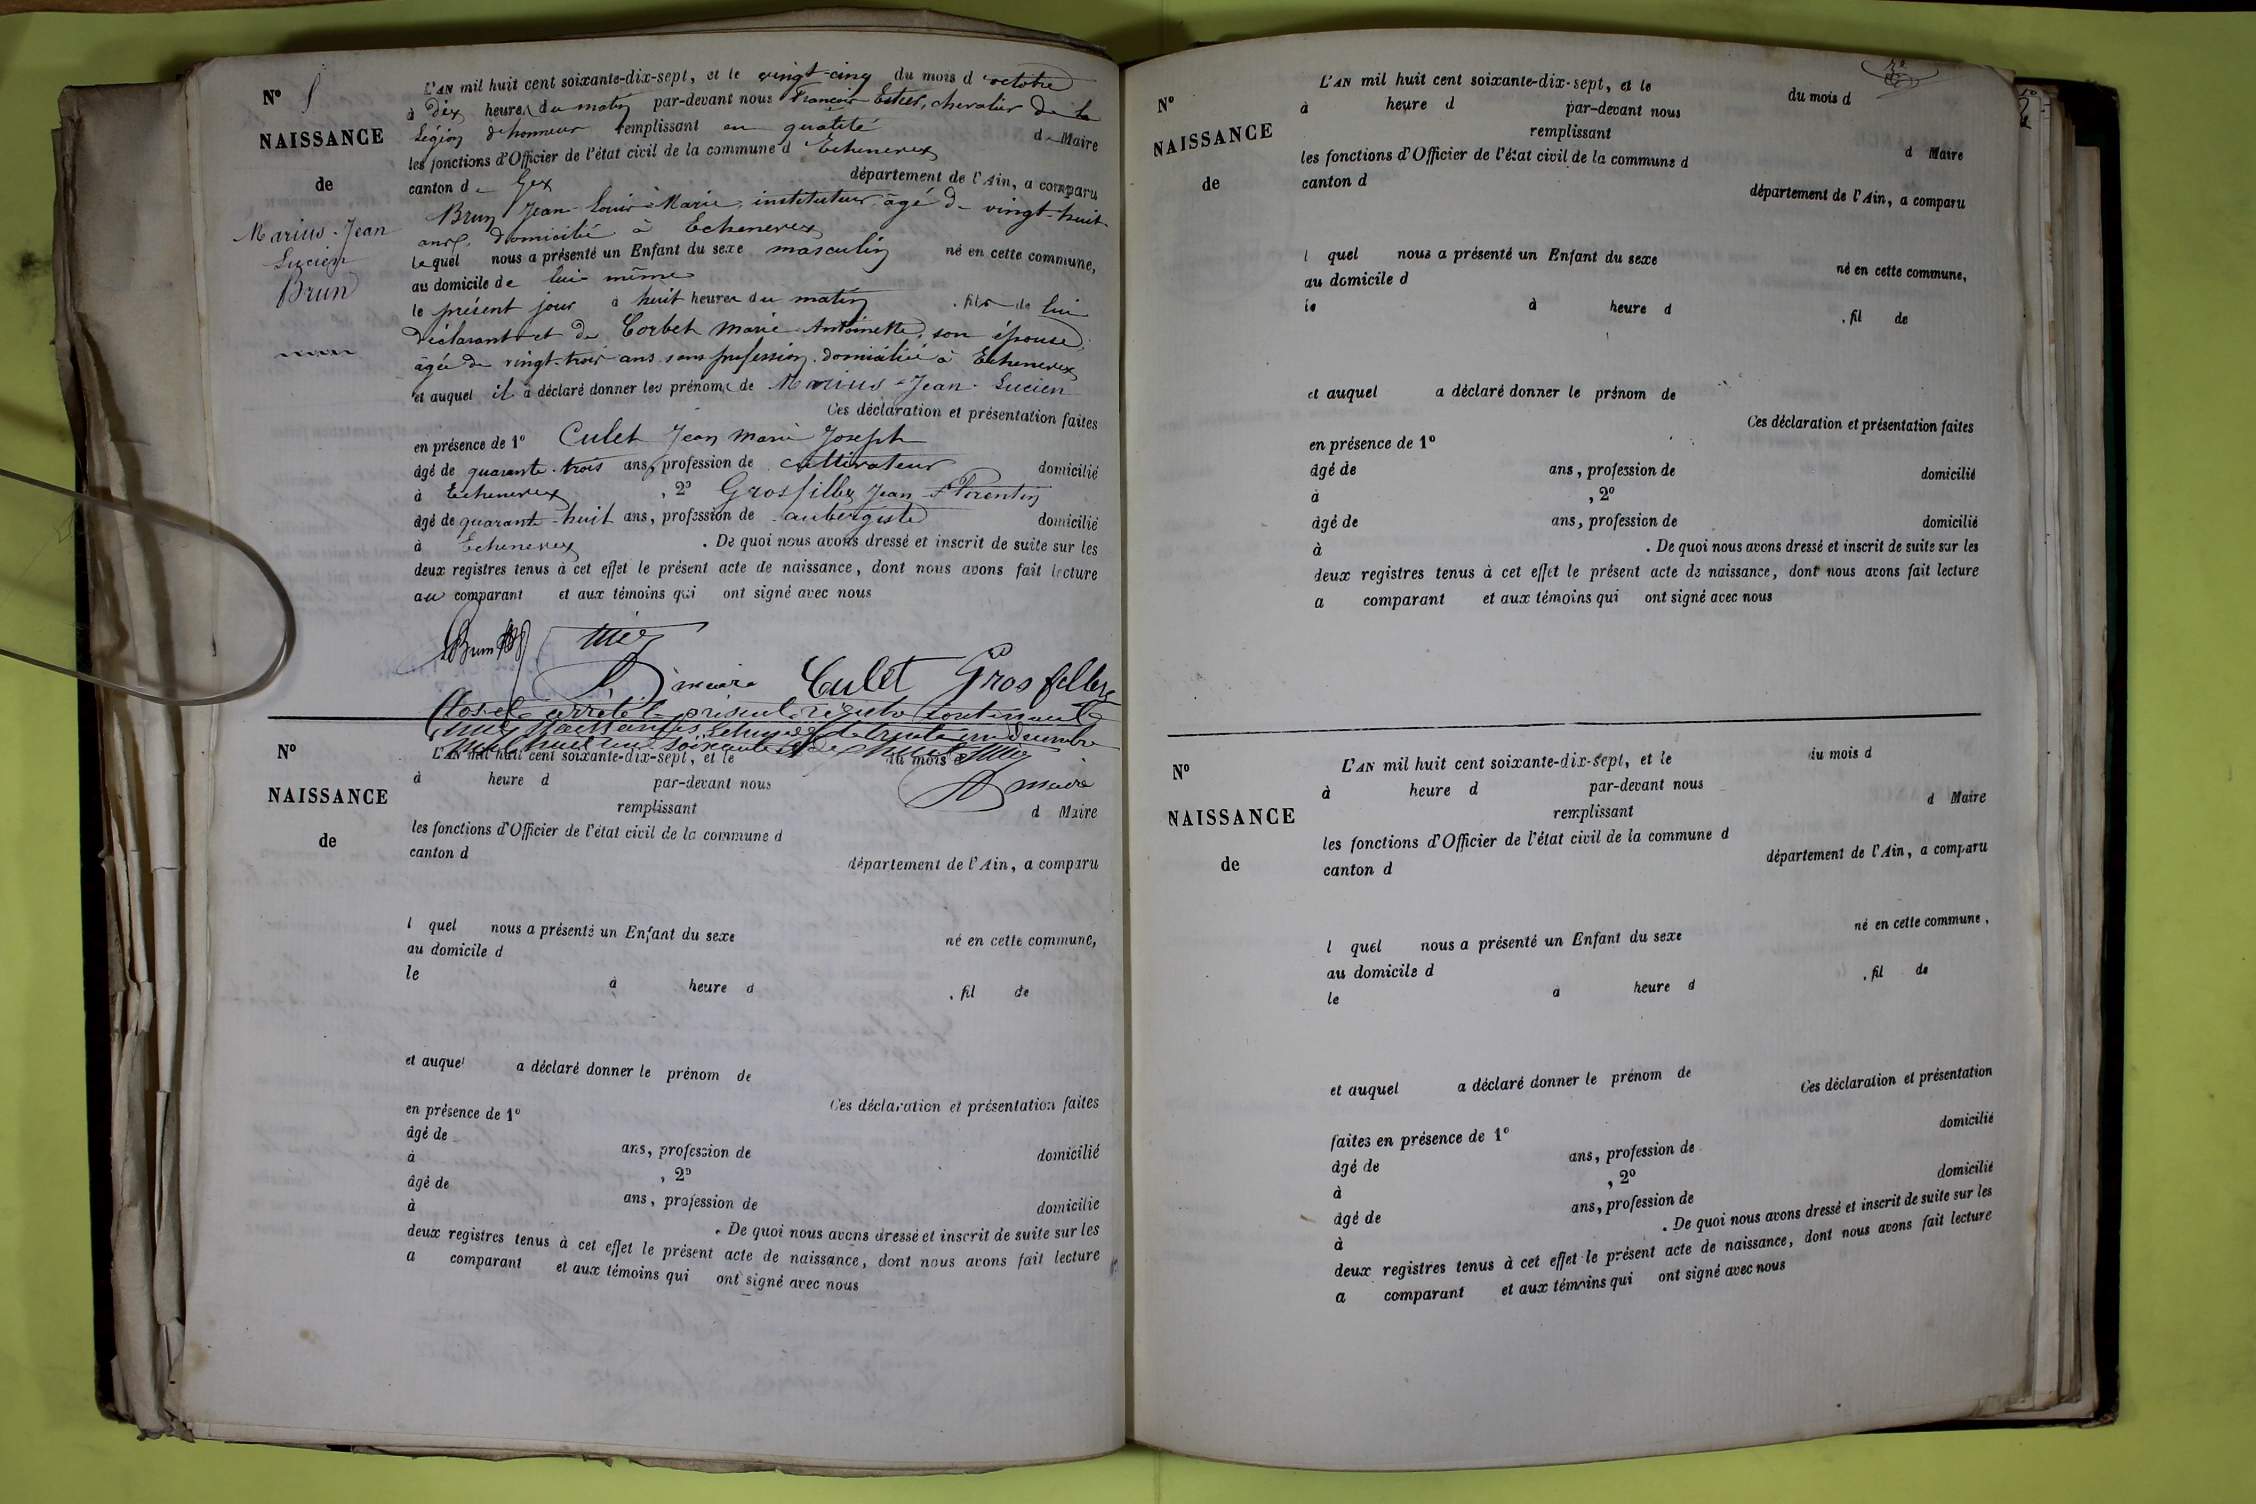 N°
NAISSANCE
de
Marius-Jean
Lucien
Brun
L'AN mil huit cent soixante-dix-sept, et le vingt-cinq du mois d'octobre
à dix heures du matin par-devant nous François chevalier de la
Légion d'honneur remplissant en qualité de Maire
les fonctions d'Officier de l'état civil de la commune d'Echenevex
canton de Gex département de l'Ain, a comparu
Brun Jean-Louis-Marie, instituteur âgé de vingt-huit
ans, domicilié à Echenevex
lequel nous a présenté un Enfant du sexe masculin né en cette commune,
au domicile de lui-même
le présent jour à huit heures du matin, fils de lui
déclarant et de Corbet Marie Antoinette, son épouse,
âgée de vingt-trois ans sans profession domiciliée à Echenevex
et auquel il a déclaré donner les prénoms de Marius-Jean-Lucien
Ces déclaration et présentation faites
en présence de 1° Culet Jean Marie Joseph
âgé de quarante-trois ans, profession de cultivateur domicilié
à Echenevex, 2° Grosfilley Jean Florentin
âgé de quarante-huit ans, profession de aubergiste domicilié
à Echenevex. De quoi nous avons dressé et inscrit de suite sur les
deux registres tenus à cet effet le présent acte de naissance, dont nous avons fait lecture
au comparant et aux témoins qui ont signé avec nous
Brun
maire Culet Grosfilley
Clos et arrêté le présent registre contenant
trente un décembre
mil huit cent soixante dix sept
maire
N°
NAISSANCE
de
L'AN mil huit cent soixante-dix-sept, et le du mois d
à heure d par-devant nous
remplissant d Maire
les fonctions d'Officier de l'état civil de la commune d
canton d département de l'Ain, a comparu
l quel nous a présenté un Enfant du sexe né en cette commune,
au domicile d
le à heure d , fil de
et auquel a déclaré donner le prénom de
Ces déclaration et présentation faites
en présence de 1°
âgé de ans, profession de domicilié
à , 2°
âgé de ans, profession de domicilié
à . De quoi nous avons dressé et inscrit de suite sur les
deux registres tenus à cet effet le présent acte de naissance, dont nous avons fait lecture
a comparant et aux témoins qui ont signé avec nous
N°
NAISSANCE
de
L'AN mil huit cent soixante-dix-sept, et le du mois d
à heure d par-devant nous
remplissant d Maire
les fonctions d'Officier de l'état civil de la commune d
canton d département de l'Ain, a comparu
l quel nous a présenté un Enfant du sexe né en cette commune,
au domicile d
le à heure d , fil de
et auquel a déclaré donner le prénom de
Ces déclaration et présentation faites
en présence de 1°
âgé de ans, profession de domicilié
à , 2°
âgé de ans, profession de domicilié
à . De quoi nous avons dressé et inscrit de suite sur les
deux registres tenus à cet effet le présent acte de naissance, dont nous avons fait lecture
a comparant et aux témoins qui ont signé avec nous
N°
NAISSANCE
de
L'AN mil huit cent soixante-dix-sept, et le du mois d
à heure d par-devant nous
remplissant d Maire
les fonctions d'Officier de l'état civil de la commune d
canton d département de l'Ain, a comparu
l quel nous a présenté un Enfant du sexe né en cette commune,
au domicile d
le à heure d , fil de
et auquel a déclaré donner le prénom de
Ces déclaration et présentation
faites en présence de 1° domicilié
âgé de ans, profession de
à , 2° domicilié
âgé de ans, profession de
à . De quoi nous avons dressé et inscrit de suite sur les
deux registres tenus à cet effet le présent acte de naissance, dont nous avons fait lecture
a comparant et aux témoins qui ont signé avec nous